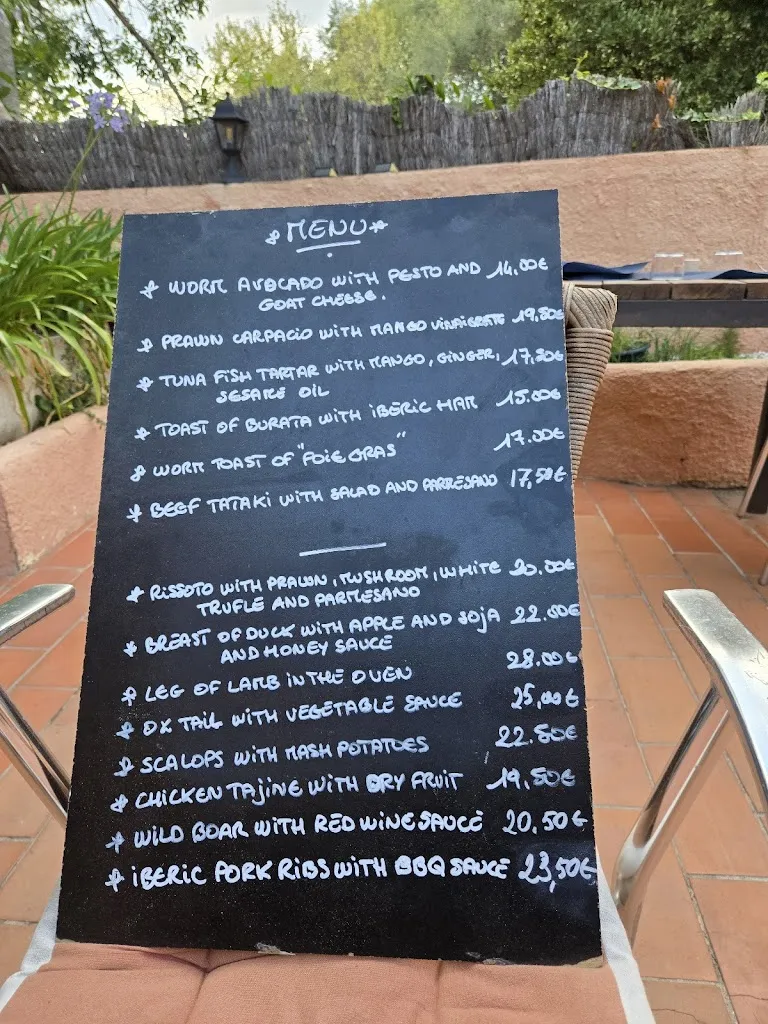 MENU
WORM AVOCADO WITH PESTO AND 14.00€
GOAT CHEESE.
PRAWN CARPACIO WITH MANGO VINAIGRETE 19,50€
TUNA FISH TARTAR WITH MANGO, GINGER, 17,50€
SESAME OIL
TOAST OF BURATA WITH IBERIC HAM 15.00€
WORM TOAST OF "FOIE GRAS" 17.00€
BEEF TATAKI WITH SALAD AND PARMESANO 17,50€
RISSOTO WITH PRAWN, MUSHROOM, WHITE 20.00€
TRUFLE AND PARMESANO
BREAST OF DUCK WITH APPLE AND SOJA 22.00€
AND HONEY SAUCE
LEG OF LAMB IN THE OVEN 28.00€
OX TAIL WITH VEGETABLE SAUCE 25,00€
SCALOPS WITH MASH POTATOES 22.50€
CHICKEN TAJINE WITH DRY FRUIT 19,50€
WILD BOAR WITH RED WINE SAUCE 20,50€
IBERIC PORK RIBS WITH BBQ SAUCE 23,50€